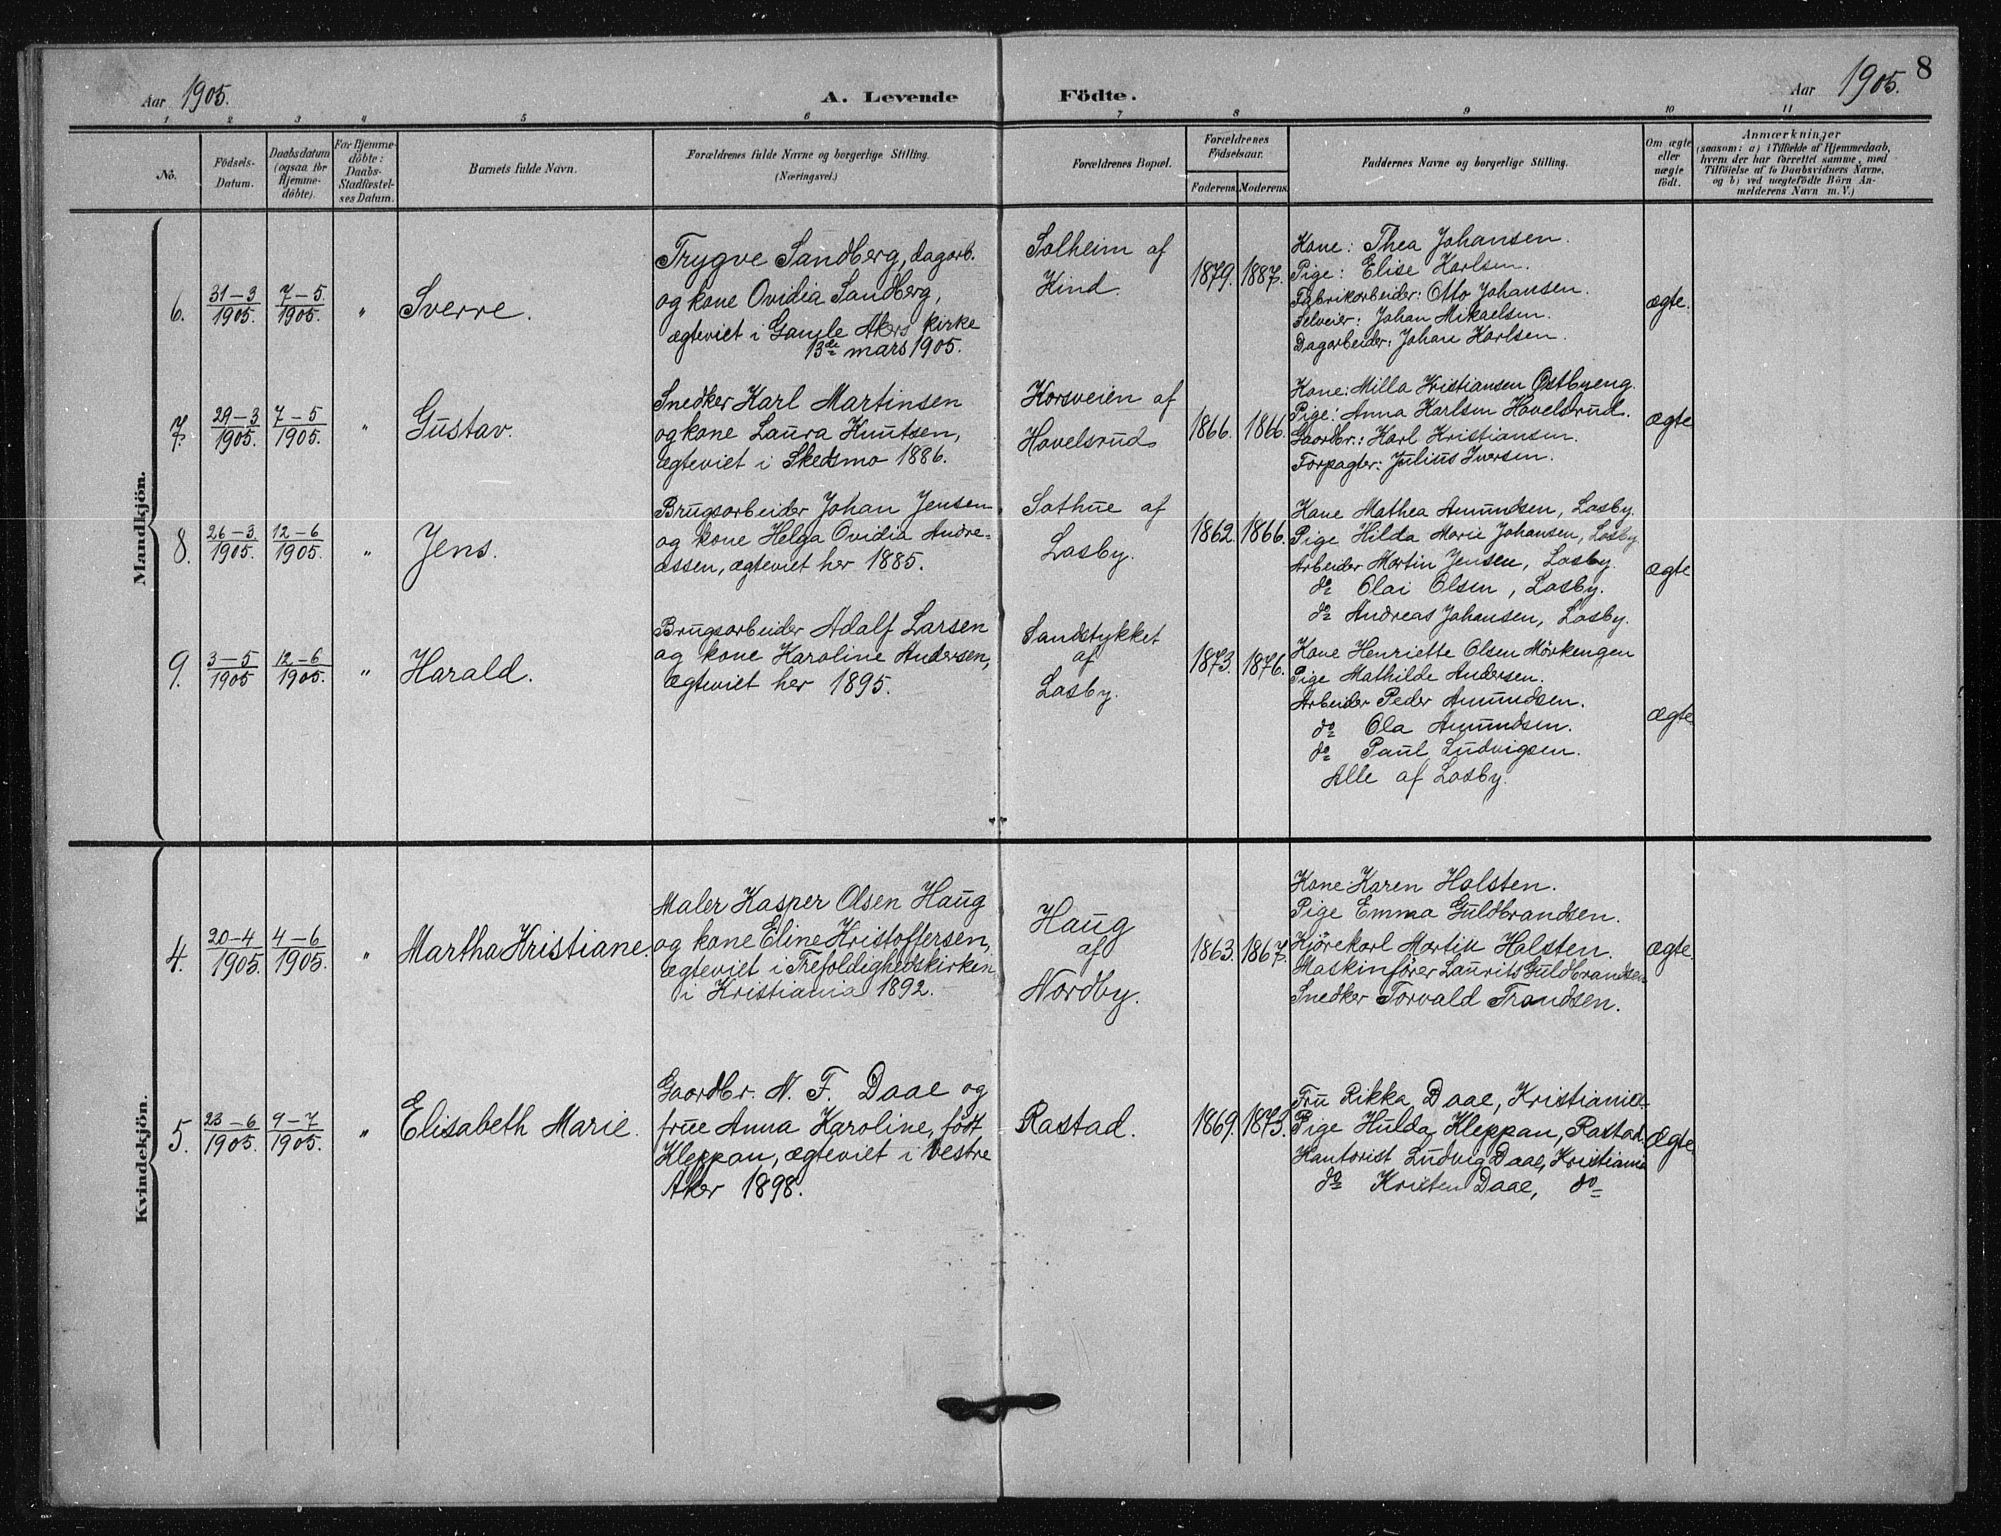 8
Aar 1905.
A. Levende Födte.
Aar 1905.
1 2 3 4 5 6 7 8 9 10 11
No.
Födsels-
Datum.
Daabsdatum
(ogsaa for
Hjemme-
döbte).
For Hjemme-
döbte:
Daabs-
Stadfæstel-
ses Datum.
Barnets fulde Navn.
Forældrenes fulde Navne og borgerlige Stilling.
(Næringsvei.)
Forældrenes Bopæl.
Forældrenes
Födselsaar.
Faderens. Moderens.
Faddernes Navne og borgerlige Stilling.
Om ægte
eller
uægte
født.
Anmærkninger
(saasom: a) i Tilfælde af Hjemmedaab,
hvem der har forrettet samme, med
Tilföielse af to Daabsvidners Navne,
og b) ved uægtefödte Börn An-
melderens Navn m. V.)
Mandkjön.
6.
31-3
1905.
7-5.
1905.
"
Sverre.
Trygve Sandberg, dagarb.
og kone Ovidia Sandberg,
ægteviet i Gamle Akers kirke
13de mars 1905.
Solheim af
Kind.
1879. 1887.
Kone: Thea Johansen.
Pige: Elise Karlsen.
Fabrikarbeider: Otto Johansen.
Selveier: Johan Mikaelsen.
Dagarbeider: Johan Karlsen.
ægte.
7.
29-3
1905.
7-5
1905.
"
Gustav.
Snedker Karl Martinsen
og kone Laura Knutsen,
ægteviet i Skedsmo 1886.
Korsveien af
Hovelsrud
1866. 1866.
Kone: Milla Kristiansen Østbyeng.
Pige: Anna Karlsen Hovelsrud.
Gaardbr.: Karl Kristiansen.
Forpagter: Julius Iversen.
ægte
8.
26-3
1905.
12-6
1905.
"
Jens.
Brugsarbeider Johan Jensen
og kone Helga Ovidia Andre-
assen, ægteviet her 1885.
Sathue af
Losby.
1862. 1866.
Kone Mathea Amundsen, Losby.
Pige Hilda Marie Johansen, Losby.
Arbeider Martin Jensen, Losby.
do Olai Olsen, Losby.
do Andreas Johansen, Losby.
ægte
9.
3-5
1905
12-6
1905.
"
Harald.
Brugsarbeider Adolf Larsen
og kone Karoline Andersen,
ægteviet her 1895.
Sandstykket
af
Losby.
1873. 1876.
Kone Henriette Olsen Mörkengen
Pige Mathilde Andersen.
Arbeider Peder Amundsen.
do Ola Amundsen.
do Paul Ludvigsen.
Alle af Losby.
ægte
Kvindekjön.
4.
20-4
1905.
4-6
1905.
"
Martha Kristiane.
Maler Kasper Olsen Haug
og kone Eline Kristoffersen,
ægteviet i Trefoldighedskirken
i Kristiania 1892.
Haug
af
Nordby.
1863. 1867.
Kone Karen Holsten.
Pige Emma Guldbrandsen.
Kjörekarl Martin Holsten.
Maskinförer Laurits Guldbrandsen
Snedker Torvald Frandsen.
ægte
5.
23-6
1905.
9-7
1905.
"
Elisabeth Marie.
Gaardbr. N. F. Daae og
frue Anna Karoline, født
Kleppan, ægteviet i Vestre
Aker 1898.
Rastad.
1869. 1873.
Fru Rikka Daae, Kristiania
Pige Hulda Kleppan, Rastad.
Kantorist Ludvig Daae, Kristiania
do Kristen Daae, do
ægte